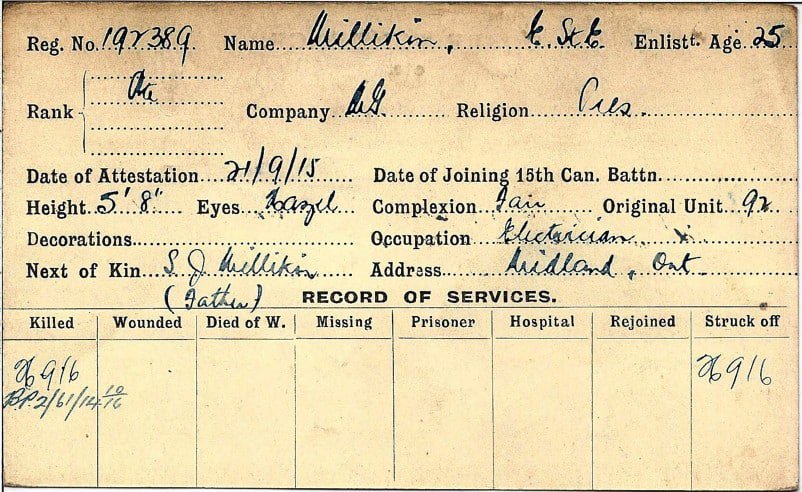 Reg. No. 192389 Name Millikin, E. St. E. Enlistt. Age 25
Rank Pte Company MG Religion Pres.
Date of Attestation 21/9/15 Date of Joining 15th Can. Battn.
Height 5' 8" Eyes Hazel Complexion Fair Original Unit 92
Decorations Occupation Electrician
Next of Kin S. J. Millikin Address Midland, Ont
(Father) RECORD OF SERVICES.
Killed Wounded Died of W. Missing Prisoner Hospital Rejoined Struck off
26 9 16 26 9 16
BP. 2/61/14 10/16